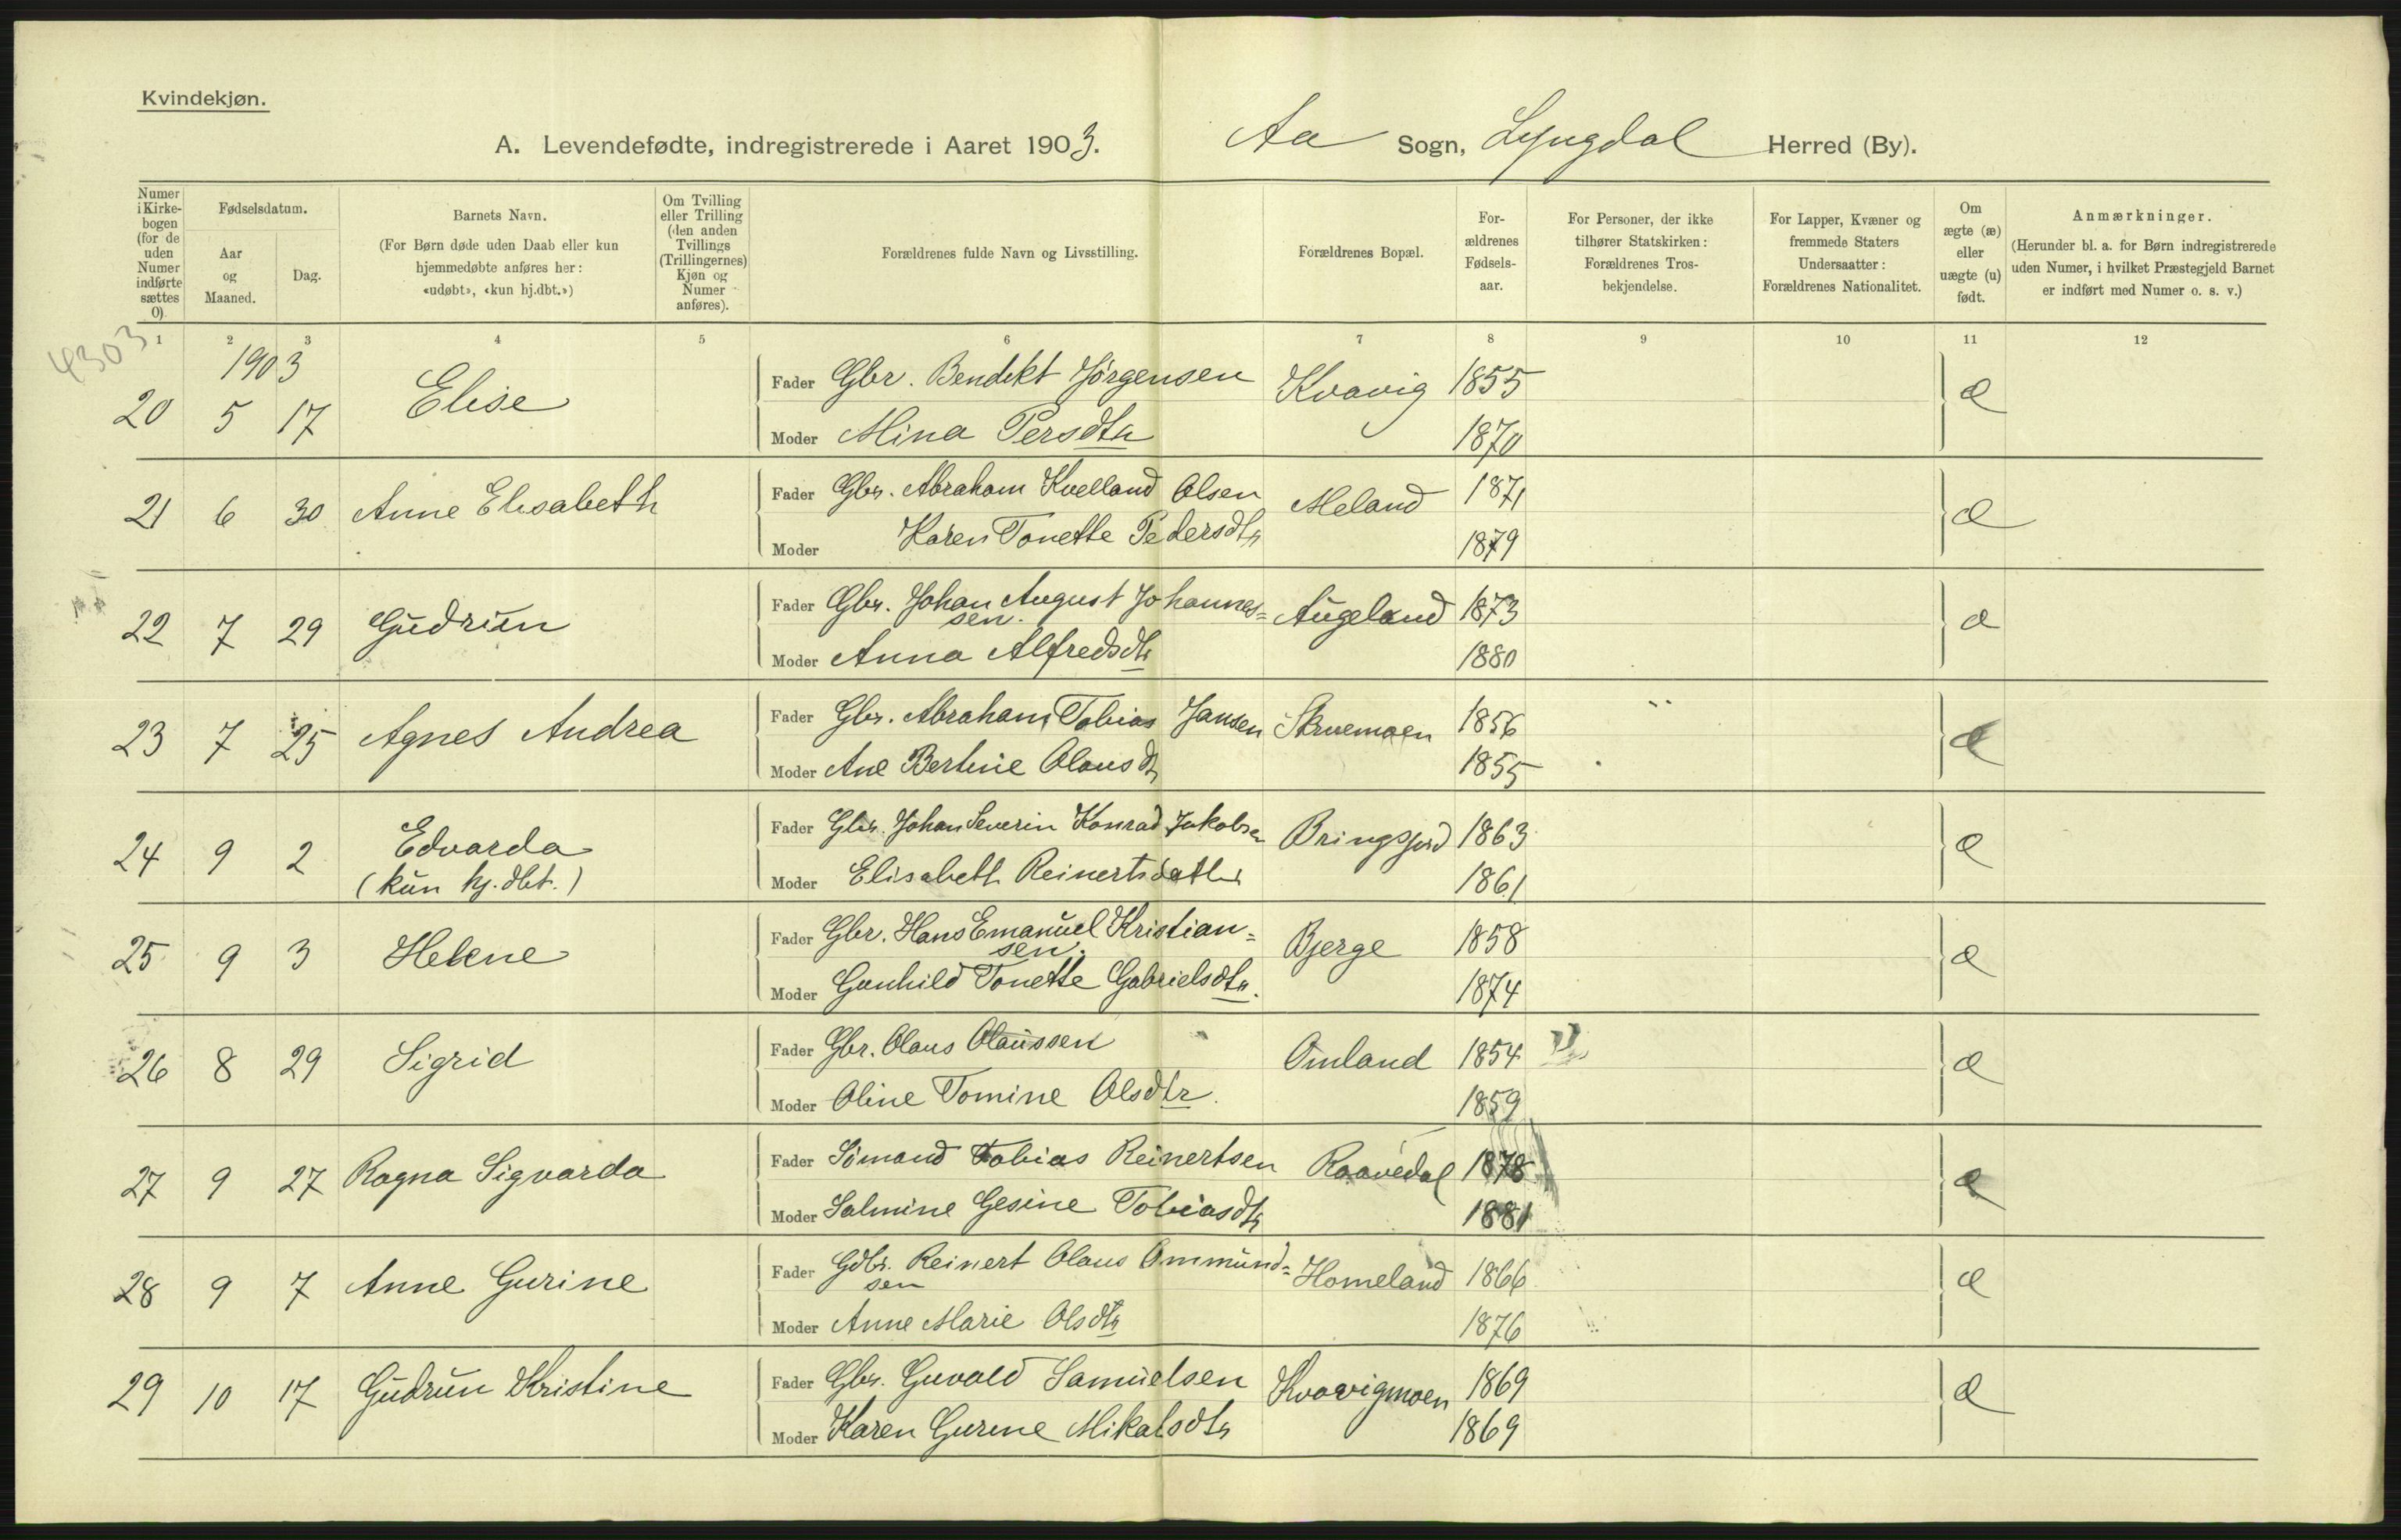 Kvindekjøn.
A. Levendefødte, indregistrerede i Aaret 1903. Aa Sogn, Lyngdal Herred (By).
Numer i Kirke-bogen (for de uden Numer indførte sættes 0).
Fødselsdatum.
Aar og Maaned.
Dag.
Barnets Navn.
(For Børn døde uden Daab eller kun hjemmedøbte anføres her: «udøbt», «kun hj.dbt.»)
Om Tvilling eller Trilling (den anden Tvillings (Trillingernes) Kjøn og Numer anføres).
Forældrenes fulde Navn og Livsstilling.
Forældrenes Bopæl.
For-ældrenes Fødsels-aar.
For Personer, der ikke tilhører Statskirken: Forældrenes Tros-bekjendelse.
For Lapper, Kvæner og fremmede Staters Undersaatter: Forældrenes Nationalitet.
Om ægte (æ) eller uægte (u) født.
Anmærkninger.
(Herunder bl. a. for Børn indregistrerede uden Numer, i hvilket Præstegjeld Barnet er indført med Numer o. s. v.)
1 2 3 4 5 6 7 8 9 10 11 12
4303
1903
20 5 17 Elise Fader Gbr. Bendikt Jørgensen Kvavig 1855 æ
Moder Mina Persdtr 1870
21 6 30 Anne Elisabeth Fader Gbr. Abraham Kvelland Olsen Meland 1871 æ
Moder Karen Tonette Pedersdtr 1879
22 7 29 Gudrun Fader Gbr. Johan August Johannes=sen. Augeland 1873 æ
Moder Anna Alfredsdtr 1880
23 7 25 Agnes Andrea Fader Gbr. Abraham Tobias Jansen Skruemoen 1856 æ
Moder Ane Bertine Olausdtr 1855
24 9 2 Edvarda (kun hj.dbt.) Fader Gbr. Johan Severin Konrad Jakobsen Bringsjord 1863 æ
Moder Elisabeth Reinertsdatter 1861
25 9 3 Helene Fader Gbr. Hans Emanuel Kristian=sen. Bjerge 1858 æ
Moder Gunhild Tonette Gabrielsdtr. 1874
26 8 29 Sigrid Fader Gbr. Olaus Olaussen Omland 1854 æ
Moder Oline Tomine Olsdtr. 1859
27 9 27 Ragna Sigvarda Fader Sømand Tobias Reinertsen Raavedal 1878 æ
Moder Salmine Gesine Tobiasdtr 1881
28 9 7 Anne Gurine Fader Gdbr. Reinert Olaus Ommund=sen Homeland 1866 æ
Moder Anne Marie Olsdtr 1876
29 10 17 Gudrun Kristine Fader Gbr. Guvald Samuelsen Kvavigmoen 1869 æ
Moder Karen Gurine Mikalsdtr 1869